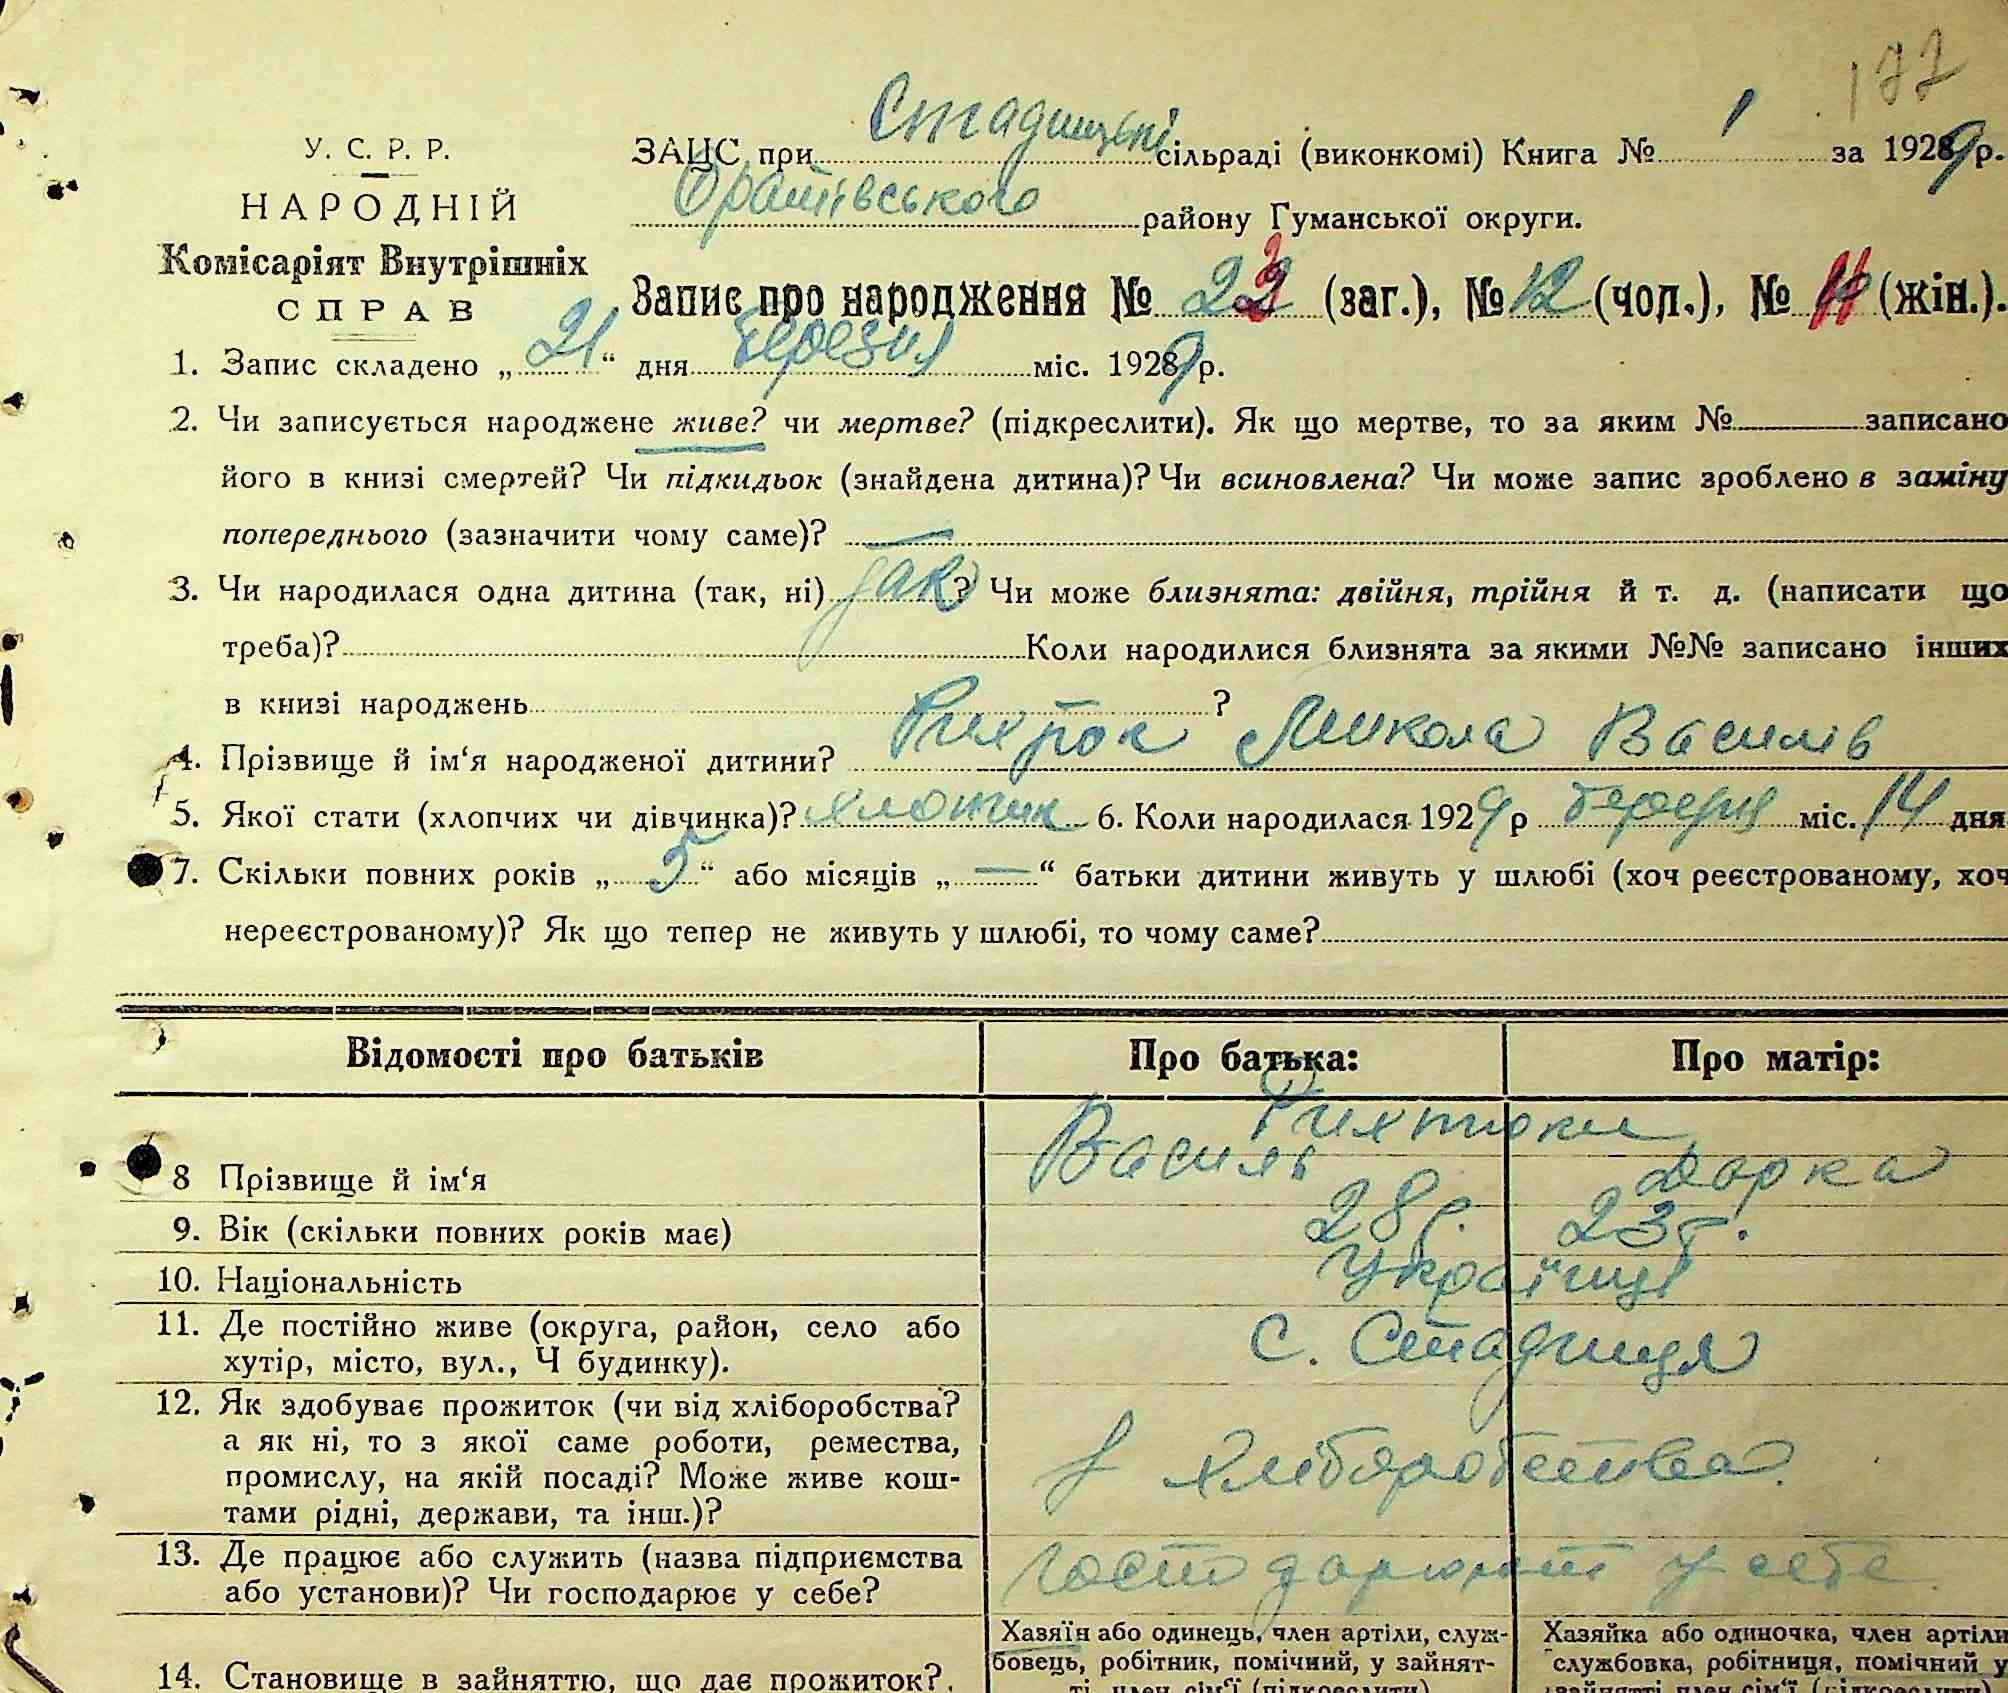 177
У. С. Р. Р.
НАРОДНІЙ
Комісаріят Внутрішніх
СПРАВ
ЗАЦС при Стадницькі сільраді (виконкомі) Книга № 1 за 1929 р.
Оратівського району Гуманської округи.
Запис про народження № 23 (заг.), № 12 (чол.), № 11 (жін.).
1. Запис складено „21“ дня березня міс. 1929 р.
2. Чи записується народжене живе? чи мертве? (підкреслити). Як що мертве, то за яким № записано
його в книзі смертей? Чи підкидьок (знайдена дитина)? Чи всиновлена? Чи може запис зроблено в заміну
попереднього (зазначити чому саме)? —
3. Чи народилася одна дитина (так, ні) так? Чи може близнята: двійня, трійня й т. д. (написати що
треба)? Коли народилися близнята за якими №№ записано інших
в книзі народжень ?
4. Прізвище й ім‘я народженої дитини? Рихтюк Микола Василів
5. Якої стати (хлопчих чи дівчинка)? хлопчик 6. Коли народилася 1929 р березня міс. 14 дня
7. Скільки повних років „5“ або місяців „—“ батьки дитини живуть у шлюбі (хоч реєстрованому, хоч
нереєстрованому)? Як що тепер не живуть у шлюбі, то чому саме?
Відомості про батьків Про батька: Про матір:
Рихтюки
8 Прізвище й ім‘я Василь Дарка
9. Вік (скільки повних років має) 28 р. 23 р.
10. Національність Українці
11. Де постійно живе (округа, район, село або
хутір, місто, вул., Ч будинку). с. Стадниця
12. Як здобуває прожиток (чи від хліборобства?
а як ні, то з якої саме роботи, ремества,
промислу, на якій посаді? Може живе кош-
тами рідні, держави, та інш.)? з хліборобства
13. Де працює або служить (назва підприємства
або установи)? Чи господарює у себе? господарюють у себе
14. Становище в зайняттю, що дає прожиток?
Хазяїн або одинець, член артіли, служ-
бовець, робітник, помічний, у зайнят-
ті, член сім‘ї (підкреслити)
Хазяйка або одиночка, член артіли
службовка, робітниця, помічний у
зайнятті член сім‘ї (підкреслити)